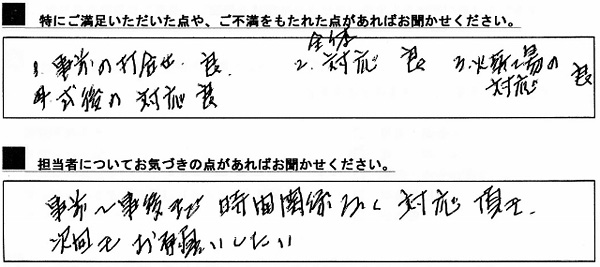 特にご満足いただいた点や、ご不満をもたれた点があればお聞かせください。
1. 事前の打合せ 良 2. 全体対応 良 3. 火葬場の対応 良
4. 式後の対応 良
担当者についてお気づきの点があればお聞かせください。
事前〜事後まで 時間関係なく 対応 頂き、
次回もお願いしたい